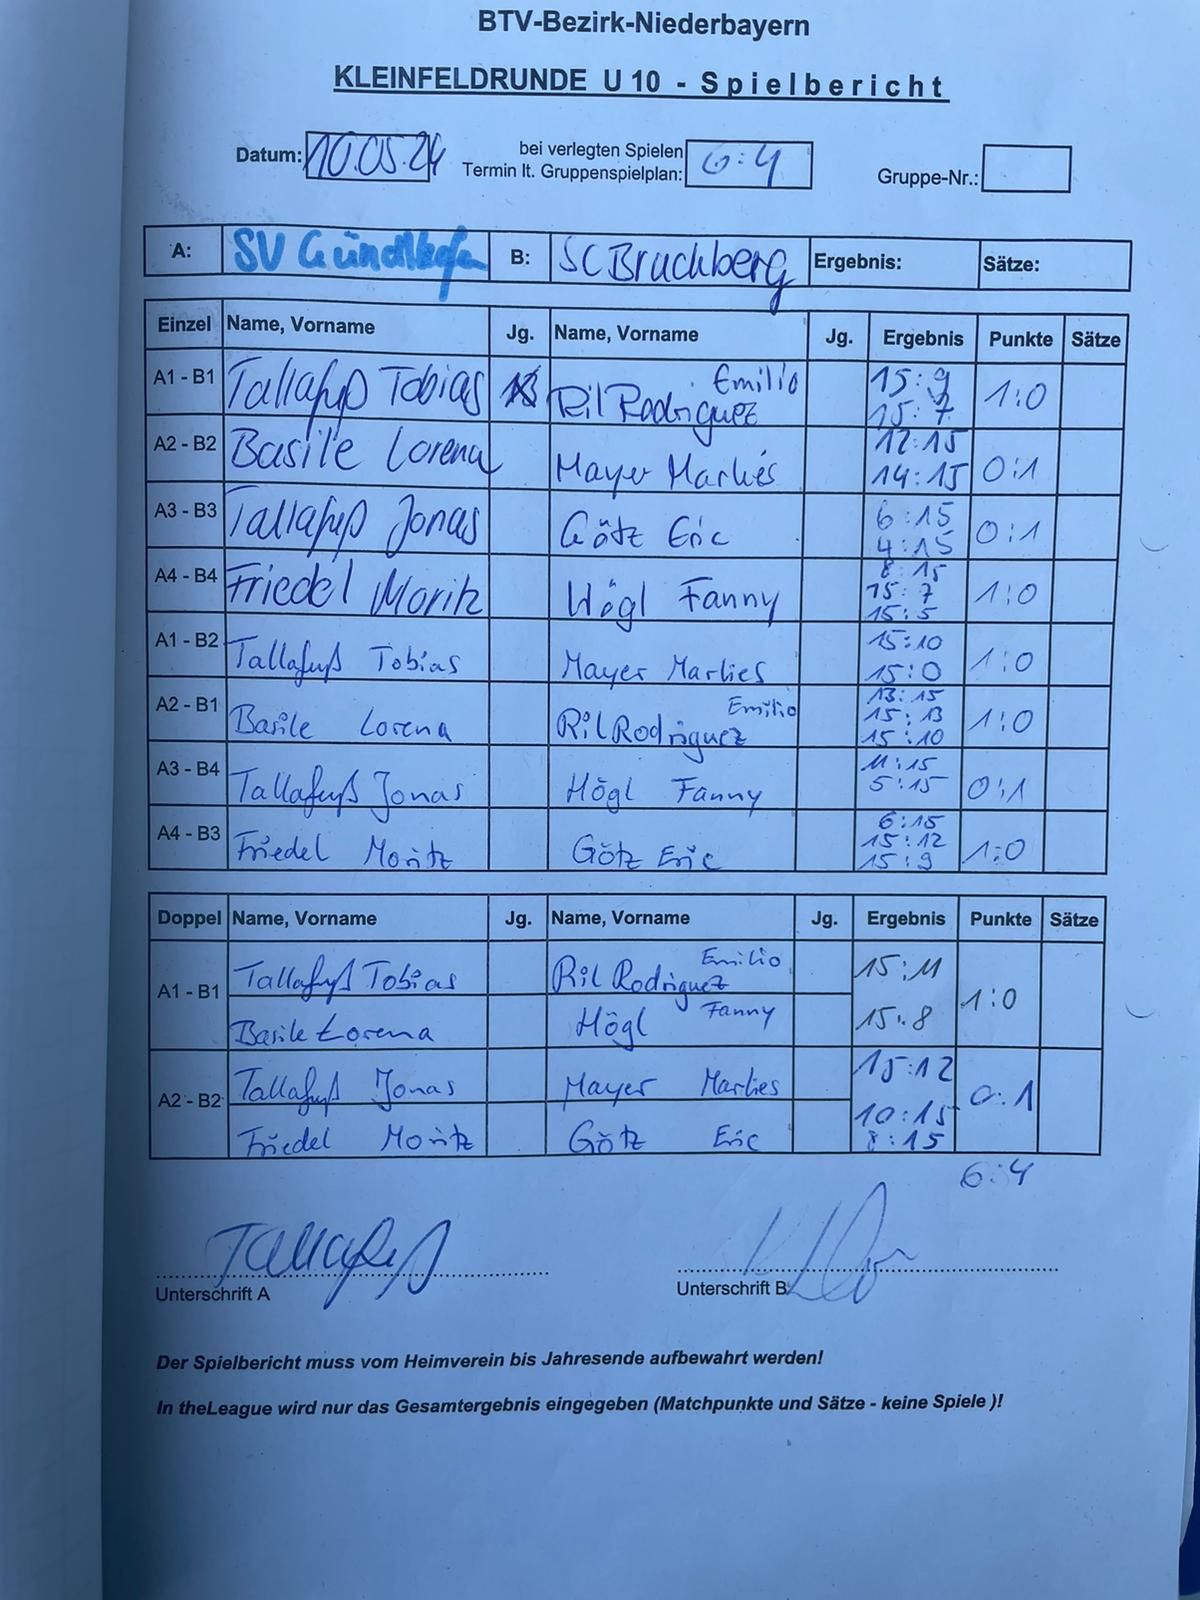 BTV-Bezirk-Niederbayern
KLEINFELDRUNDE U 10 - Spielbericht
Datum: 10.05.24 bei verlegten Spielen Termin lt. Gruppenspielplan: 6:4 Gruppe-Nr.:
A: SV Gündlkofen B: SC Bruckberg Ergebnis: Sätze:
Einzel Name, Vorname Jg. Name, Vorname Jg. Ergebnis Punkte Sätze
A1 - B1 Tallafuß Tobias Ril Rodriguez Emilio 15:9 15:7 1:0
A2 - B2 Basile Lorena Mayer Marlies 12:15 14:15 0:1
A3 - B3 Tallafuß Jonas Götz Eric 6:15 4:15 0:1
A4 - B4 Friedel Moritz Högl Fanny 8:15 15:7 15:5 1:0
A1 - B2 Tallafuß Tobias Mayer Marlies 15:10 15:0 1:0
A2 - B1 Basile Lorena Ril Rodriguez Emilio 13:15 15:13 15:10 1:0
A3 - B4 Tallafuß Jonas Högl Fanny 11:15 5:15 0:1
A4 - B3 Friedel Moritz Götz Eric 6:15 15:12 15:9 1:0
Doppel Name, Vorname Jg. Name, Vorname Jg. Ergebnis Punkte Sätze
A1 - B1 Tallafuß Tobias Ril Rodriguez Emilio 15:11 1:0
Basile Lorena Högl Fanny 15:8
A2 - B2 Tallafuß Jonas Mayer Marlies 15:12 0:1
Friedel Moritz Götz Eric 10:15 8:15
6:4
Tallafuß
Unterschrift A Unterschrift B
Der Spielbericht muss vom Heimverein bis Jahresende aufbewahrt werden!
In theLeague wird nur das Gesamtergebnis eingegeben (Matchpunkte und Sätze - keine Spiele )!